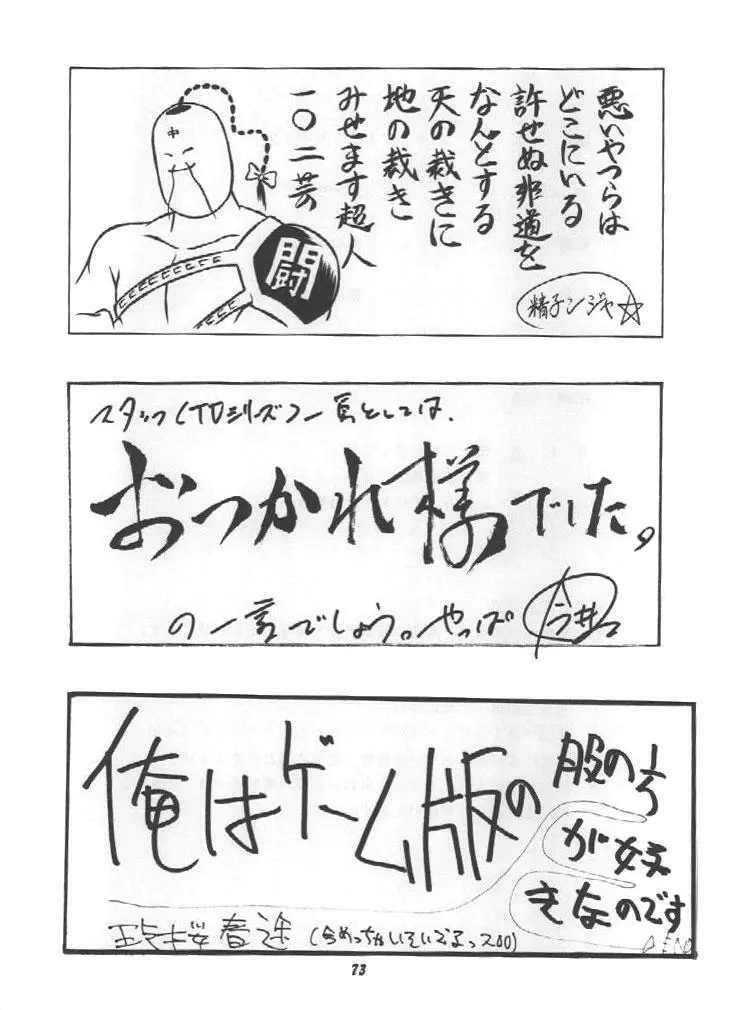 悪いやつらは
どこにいる
許せぬ非道を
なんとする
天の裁きに
地の裁き
みせます超人
一〇二芸
中
闘
精子ンジャ☆
スタッフ(TDシリーズ)一員としては、
おつかれ様でした。
の一言でしょう。やっぱ
今井
俺はゲーム版の
股の
が好
きなのです
桜春途(今めっちゃいそいでるっスOO)
73